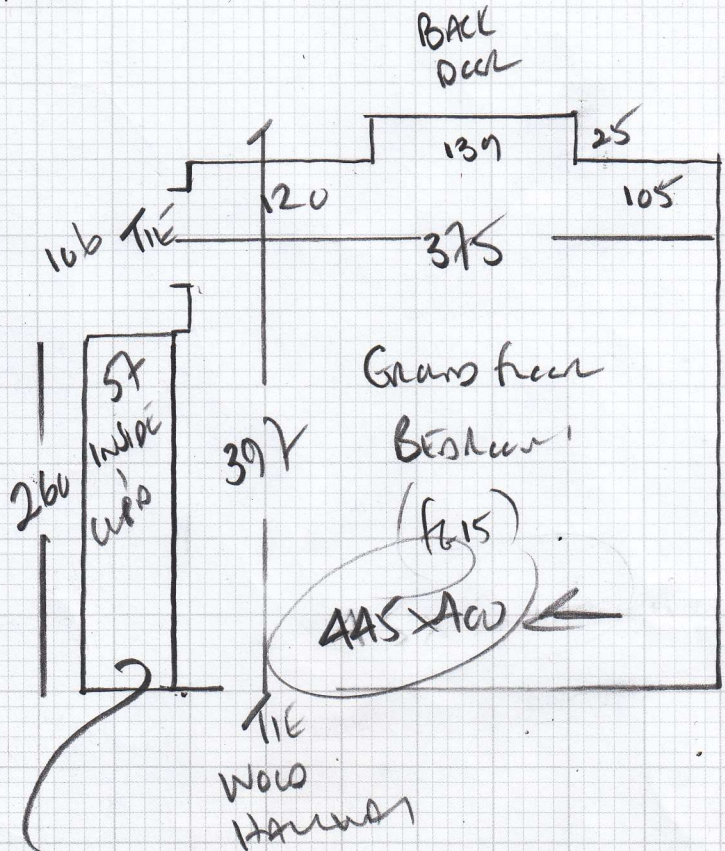 BACK
DOOR
139
25
120
105
106 TIE
375
57
INSIDE
CUPD
260
397
GROUND FLOOR
BEDROOM 1
445 x 400
TIE
HALLWAY